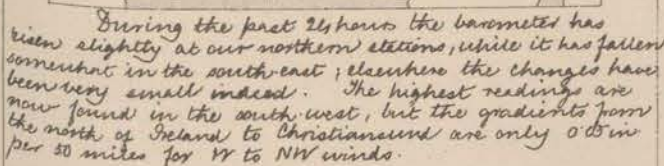 During the past 24 hours the barometer has
risen slightly at our northern stations, while it has fallen
somewhat in the south-east; elsewhere the changes have
been very small indeed. The highest readings are
now found in the south-west, but the gradients from
the north of Ireland to Christiansund are only 0.05 in
per 50 miles for W to NW winds.